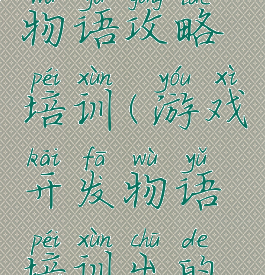 wù yǔ gōng lüè
物语攻略
péi xùn yóu xì
培训(游戏
kāi fā wù yǔ
开发物语
péi xùn chū de
培训出的